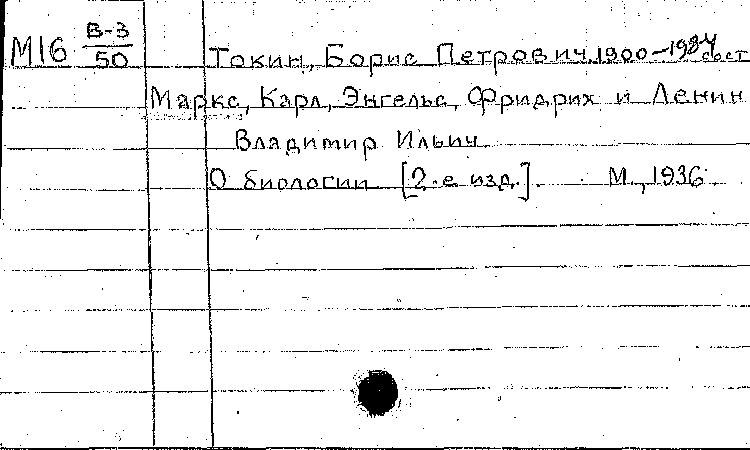 М16 В-3/50
Токин, Борис Петрович, 1900-1984 сост
Маркс, Карл, Энгельс, Фридрих и Ленин
Владимир Ильич
О биологии [2-е изд.]. М., 1936.